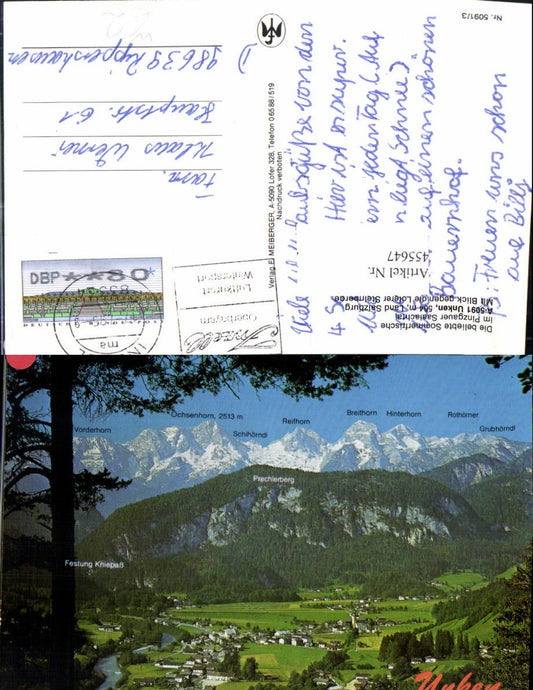 Nr. 5091/3
Viele Urlaubsgrüße von den
Hier ist es super.
jeden Tag (Auf
liegt Schnee)
auf einen schönen
Bauernhof.
Freuen uns schon
auf
Artikel Nr.
455647
Die beliebte Sommerfrische
A-5091 Unken, 564 m, Land Salzburg
im Pinzgauer Saalachtal
Mit Blick gegen die Loferer Steinberge
Verlag F. MEIBERGER, A-5090 Lofer 328, Telefon 0 65 88 / 519
Nachdruck verboten
Inzell
Oberbayern
Luftkurort
Wintersport
DBP **80*
Fam.
Klaus Werner
Hauptstr. 61
D 98639 Rippershausen
Vorderhorn
Ochsenhorn, 2513 m
Schihörndl
Reifhorn
Breithorn
Hinterhorn
Rothörner
Grubhörndl
Prechlerberg
Festung Kniepaß
Unken